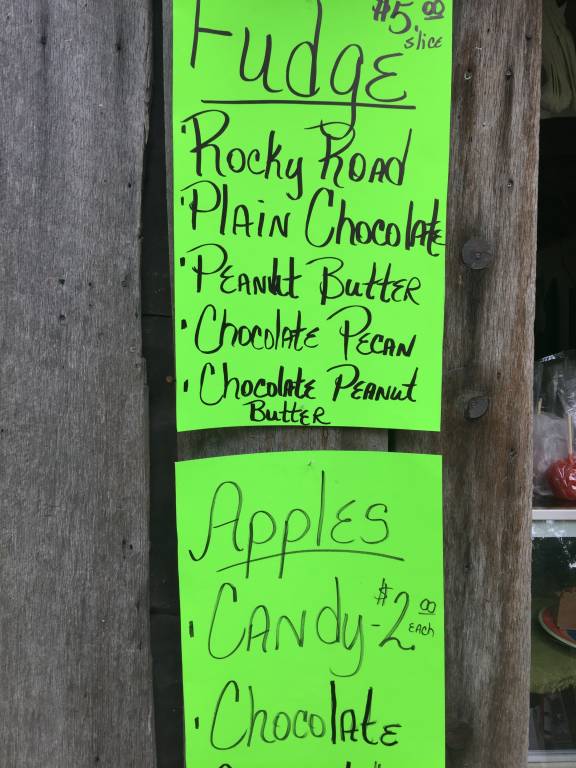 $5.00
slice
Fudge
· Rocky Road
· Plain Chocolate
· Peanut Butter
· Chocolate Pecan
· Chocolate Peanut
Butter
Apples
· Candy - $2.00
each
· Chocolate